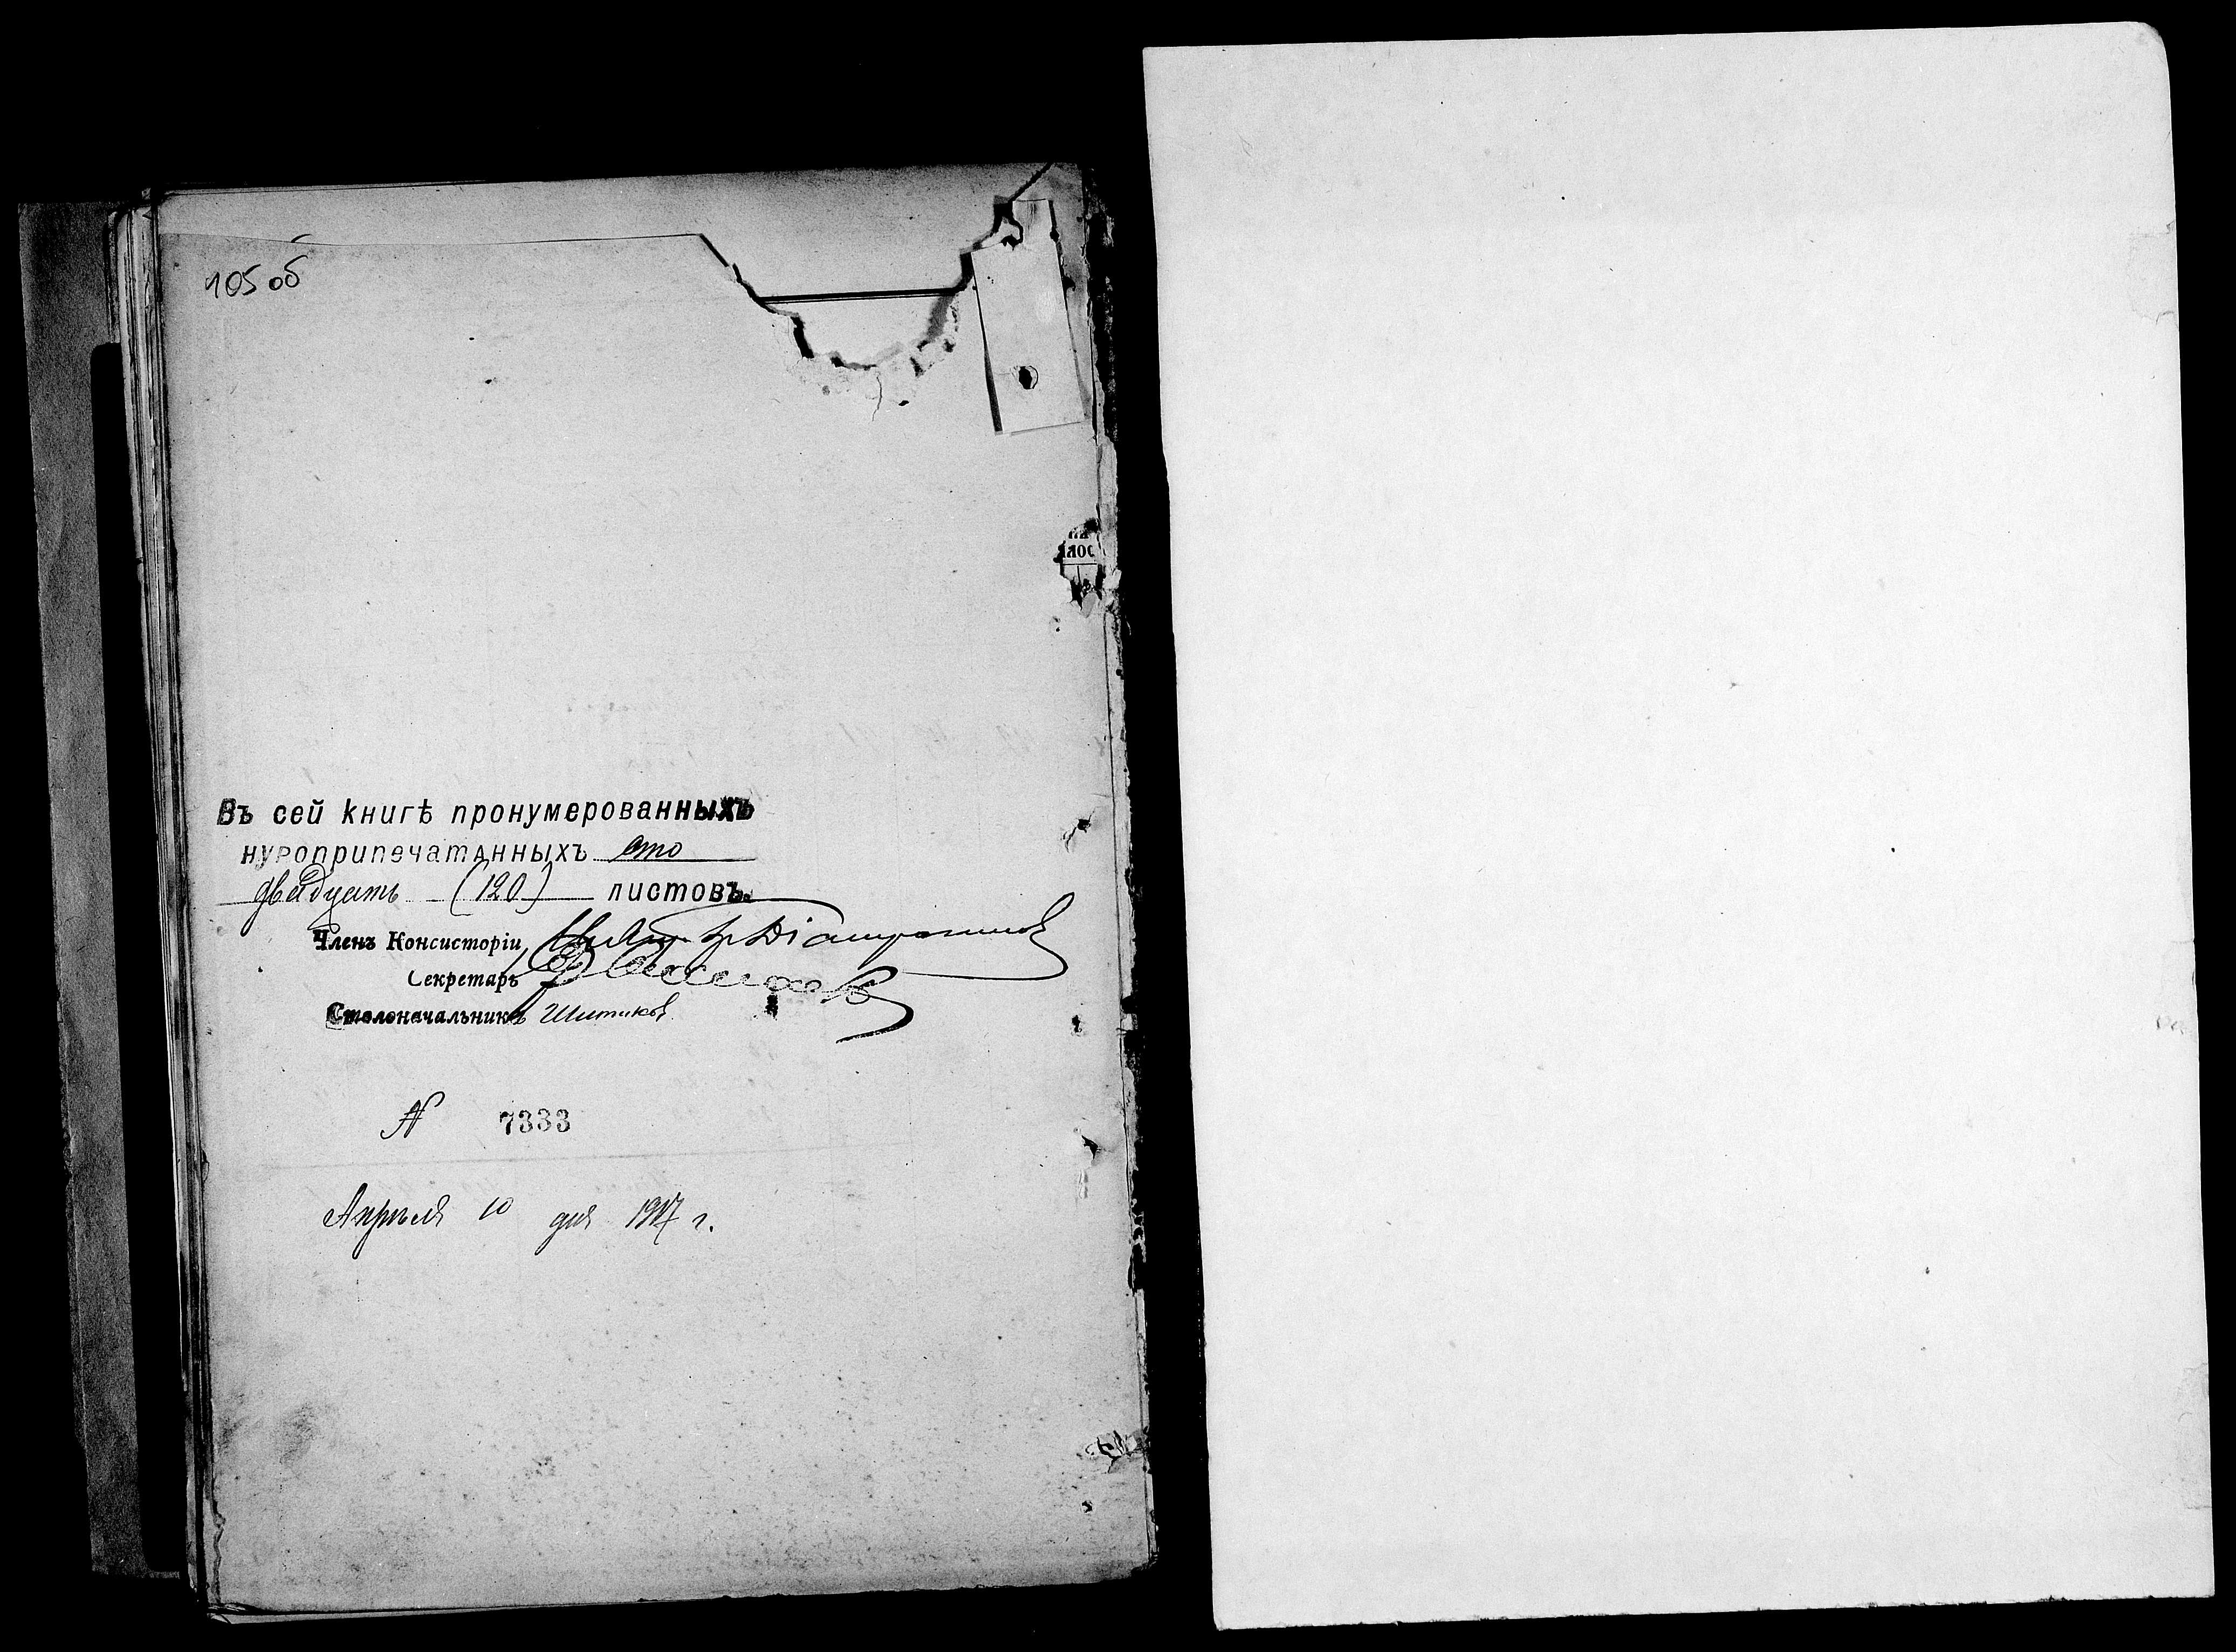 105 об
лос
Въ сей книгѣ пронумерованныхъ
нуроприпечатанныхъ сто
двадцать (120) листовъ.
Членъ Консисторіи,
Секретарь
Столоначальникъ Шитиковъ
N 7333
Апрѣля 10 дня 1917 г.